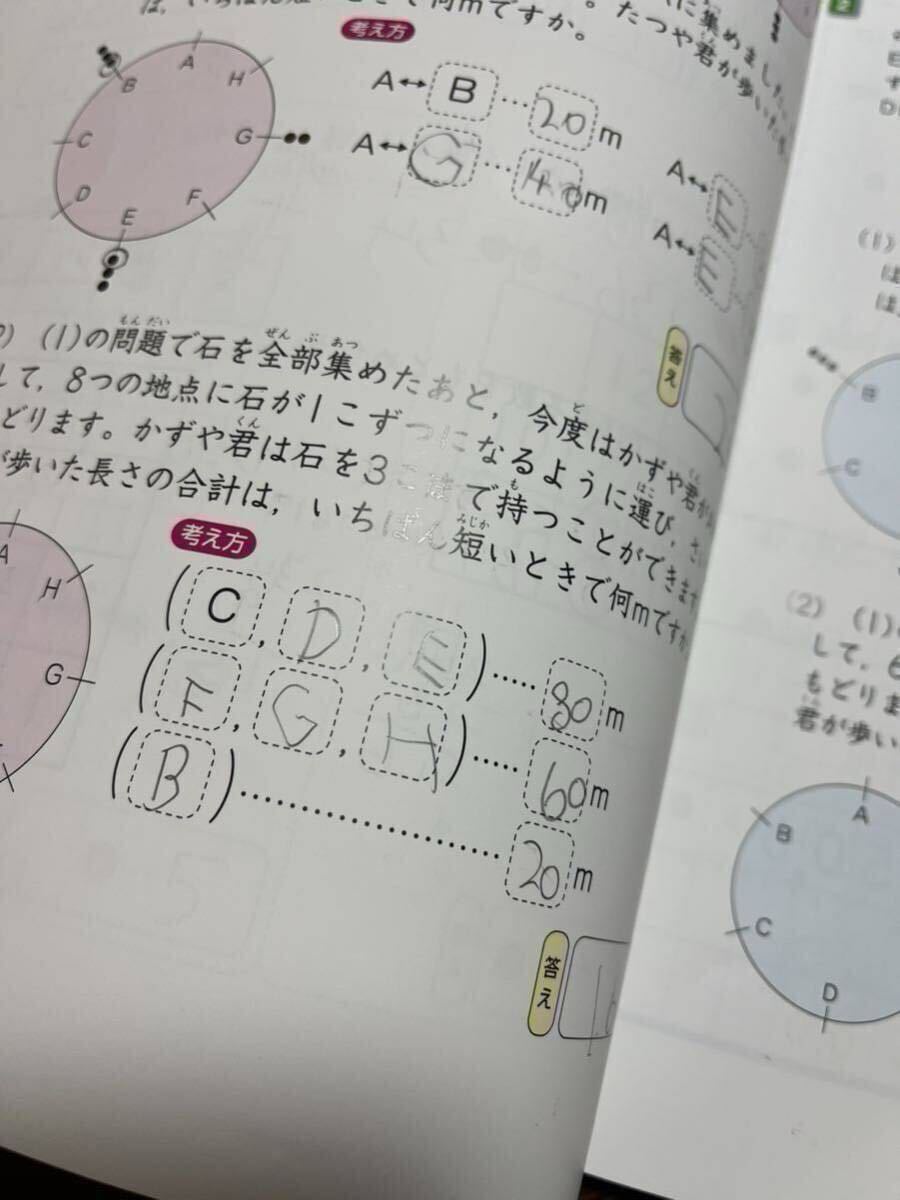 は，いちばん短いときで何mですか。
に集めました
たつや君が歩いた
考え方
A↔B…20m
A↔G…40m
A↔E
A↔E
A
H
B
C
G
D
E
F
答え
(1)の問題で石を全部集めたあと，今度はかずや君が
して，8つの地点に石が1こずつになるように運び，さ
どります。かずや君は石を3こまで持つことができます
が歩いた長さの合計は，いちばん短いときで何mですか
考え方
A
H
G
(C，D，E)……80m
(F，G，H)……60m
(B)……………………20m
答え
2
(1)
は
は
B
C
(2) (1)
して，6
もどりま
君が歩い
A
B
C
D